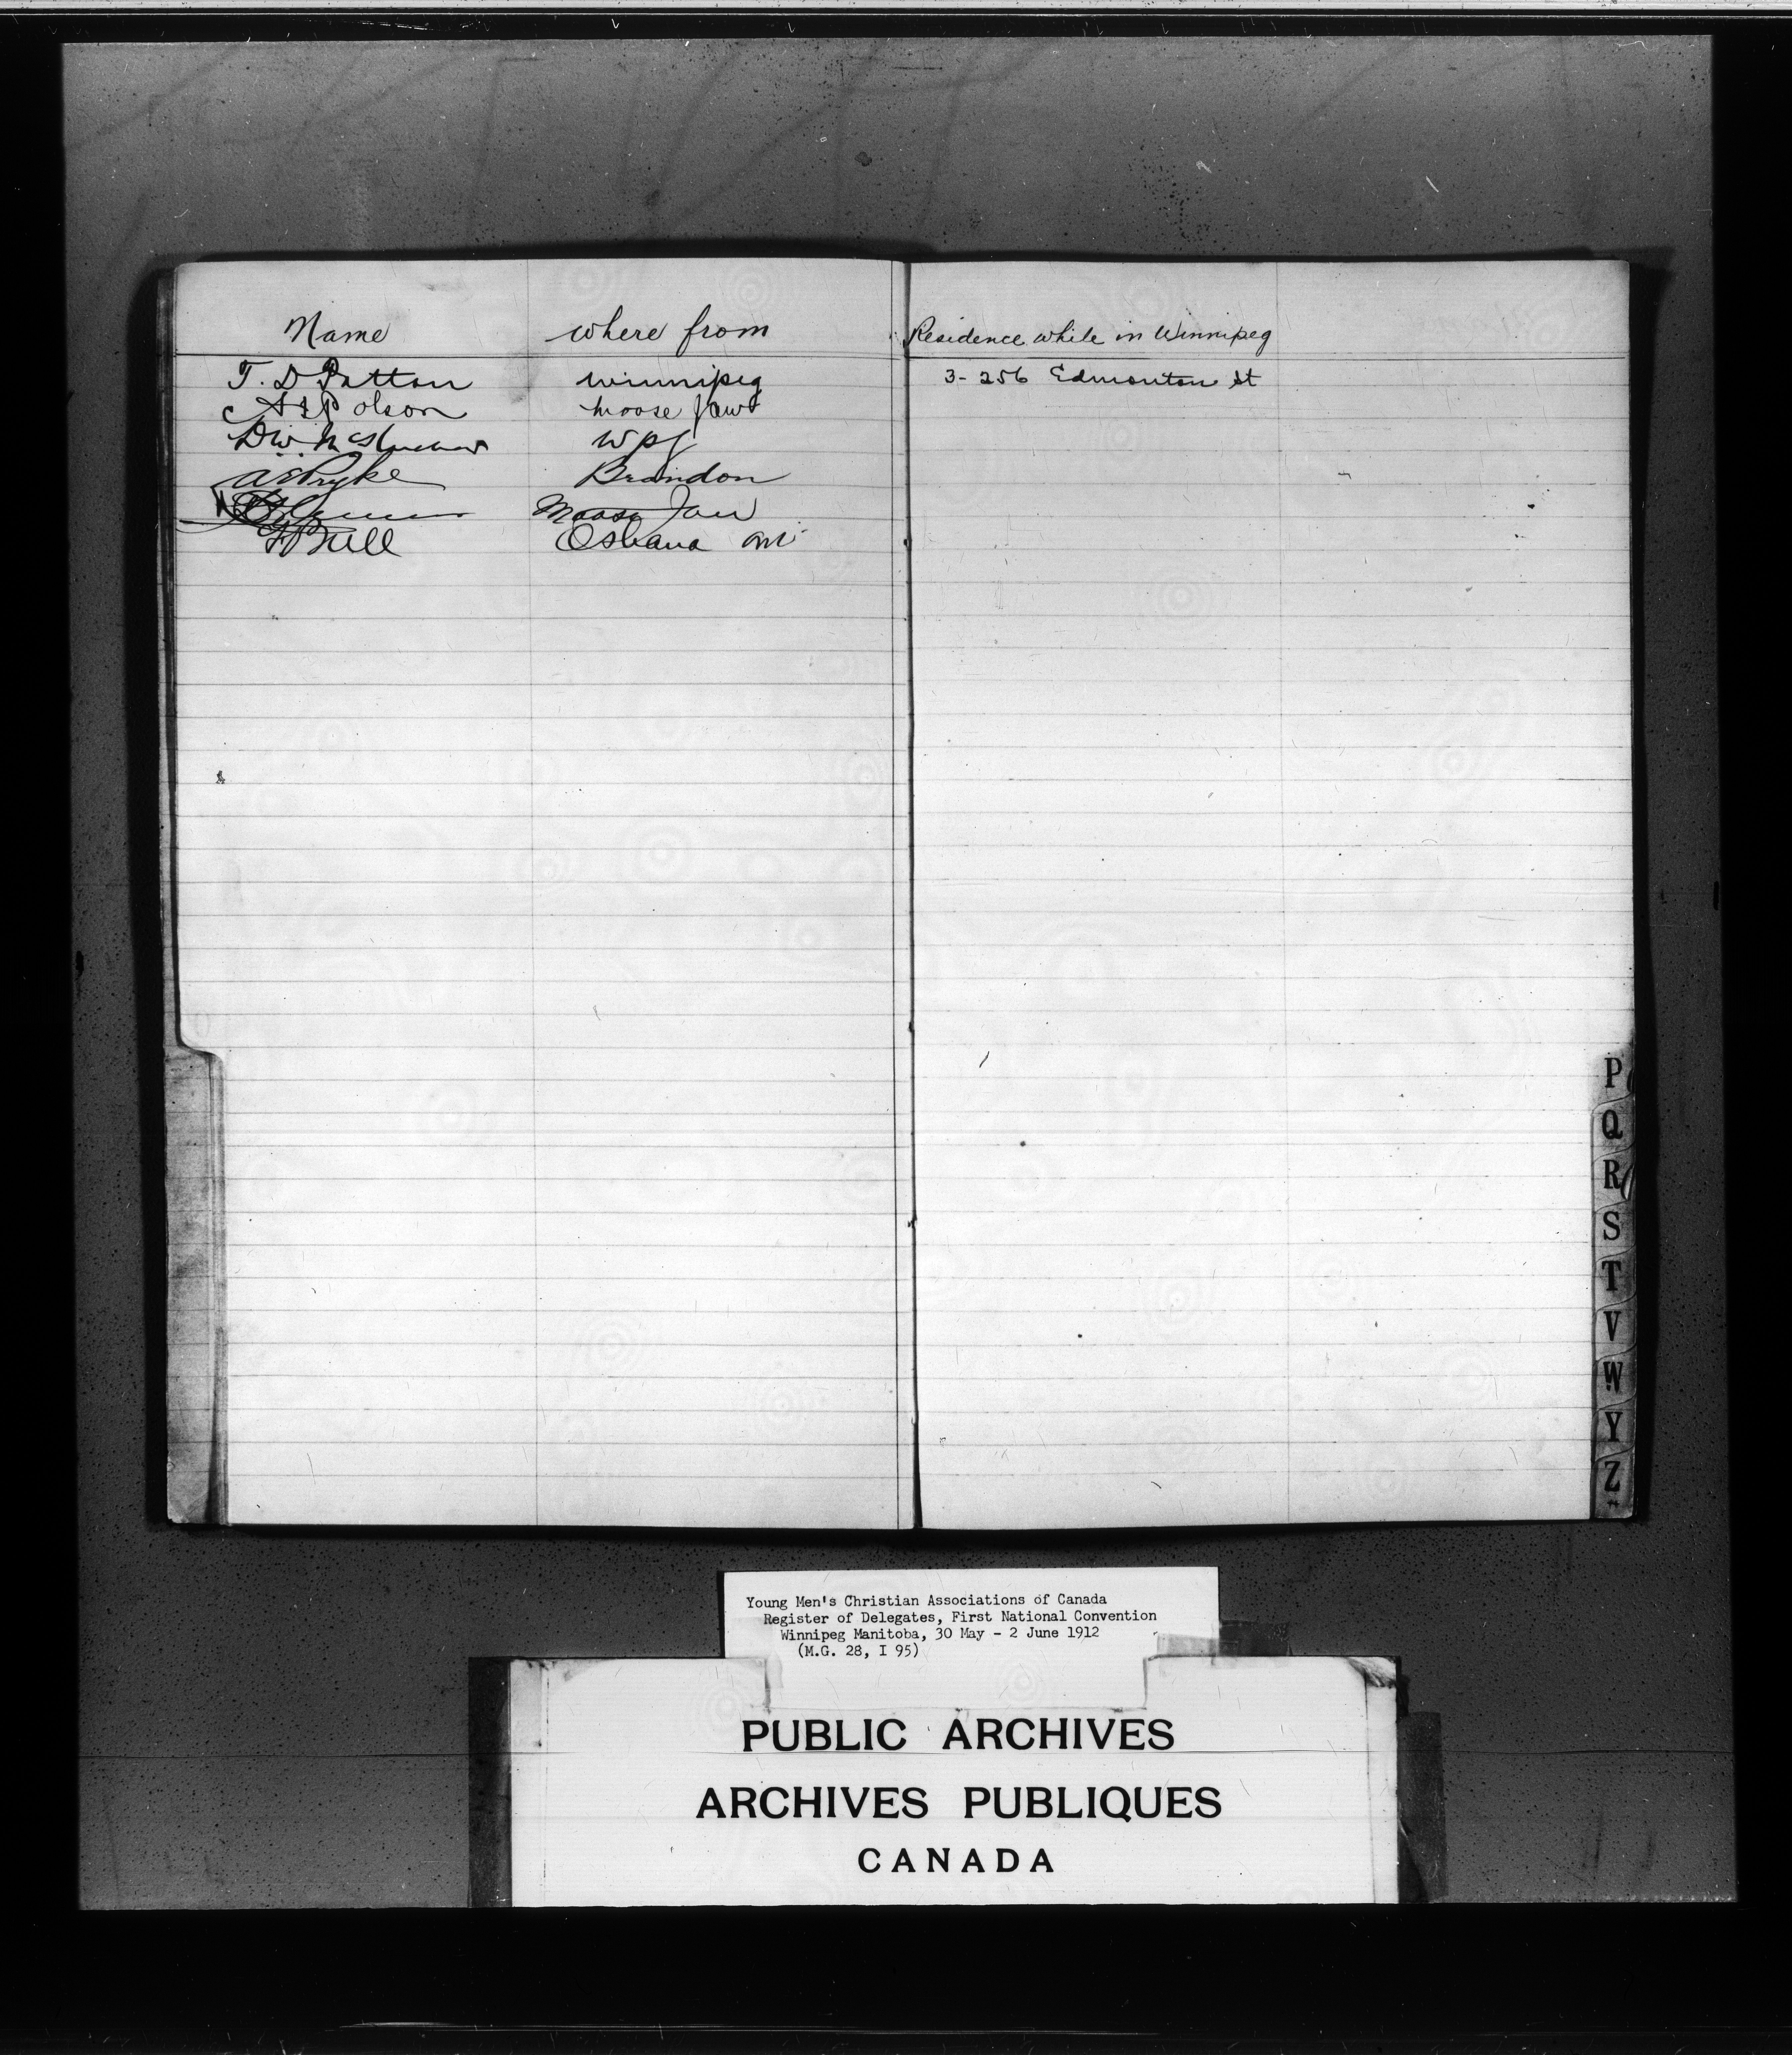 Name where from Residence while in Winnipeg
T. D Patton Winnipeg 3-256 Edmonton St
Polson Moose Jaw
D.W. Wpg
A E Pryke Brandon
Moose Jaw
Oshawa Ont
P
Q
R
S
T
V
W
Y
Z
Young Men's Christian Associations of Canada
Register of Delegates, First National Convention
Winnipeg Manitoba, 30 May - 2 June 1912
(M.G. 28, I 95)
PUBLIC ARCHIVES
ARCHIVES PUBLIQUES
CANADA